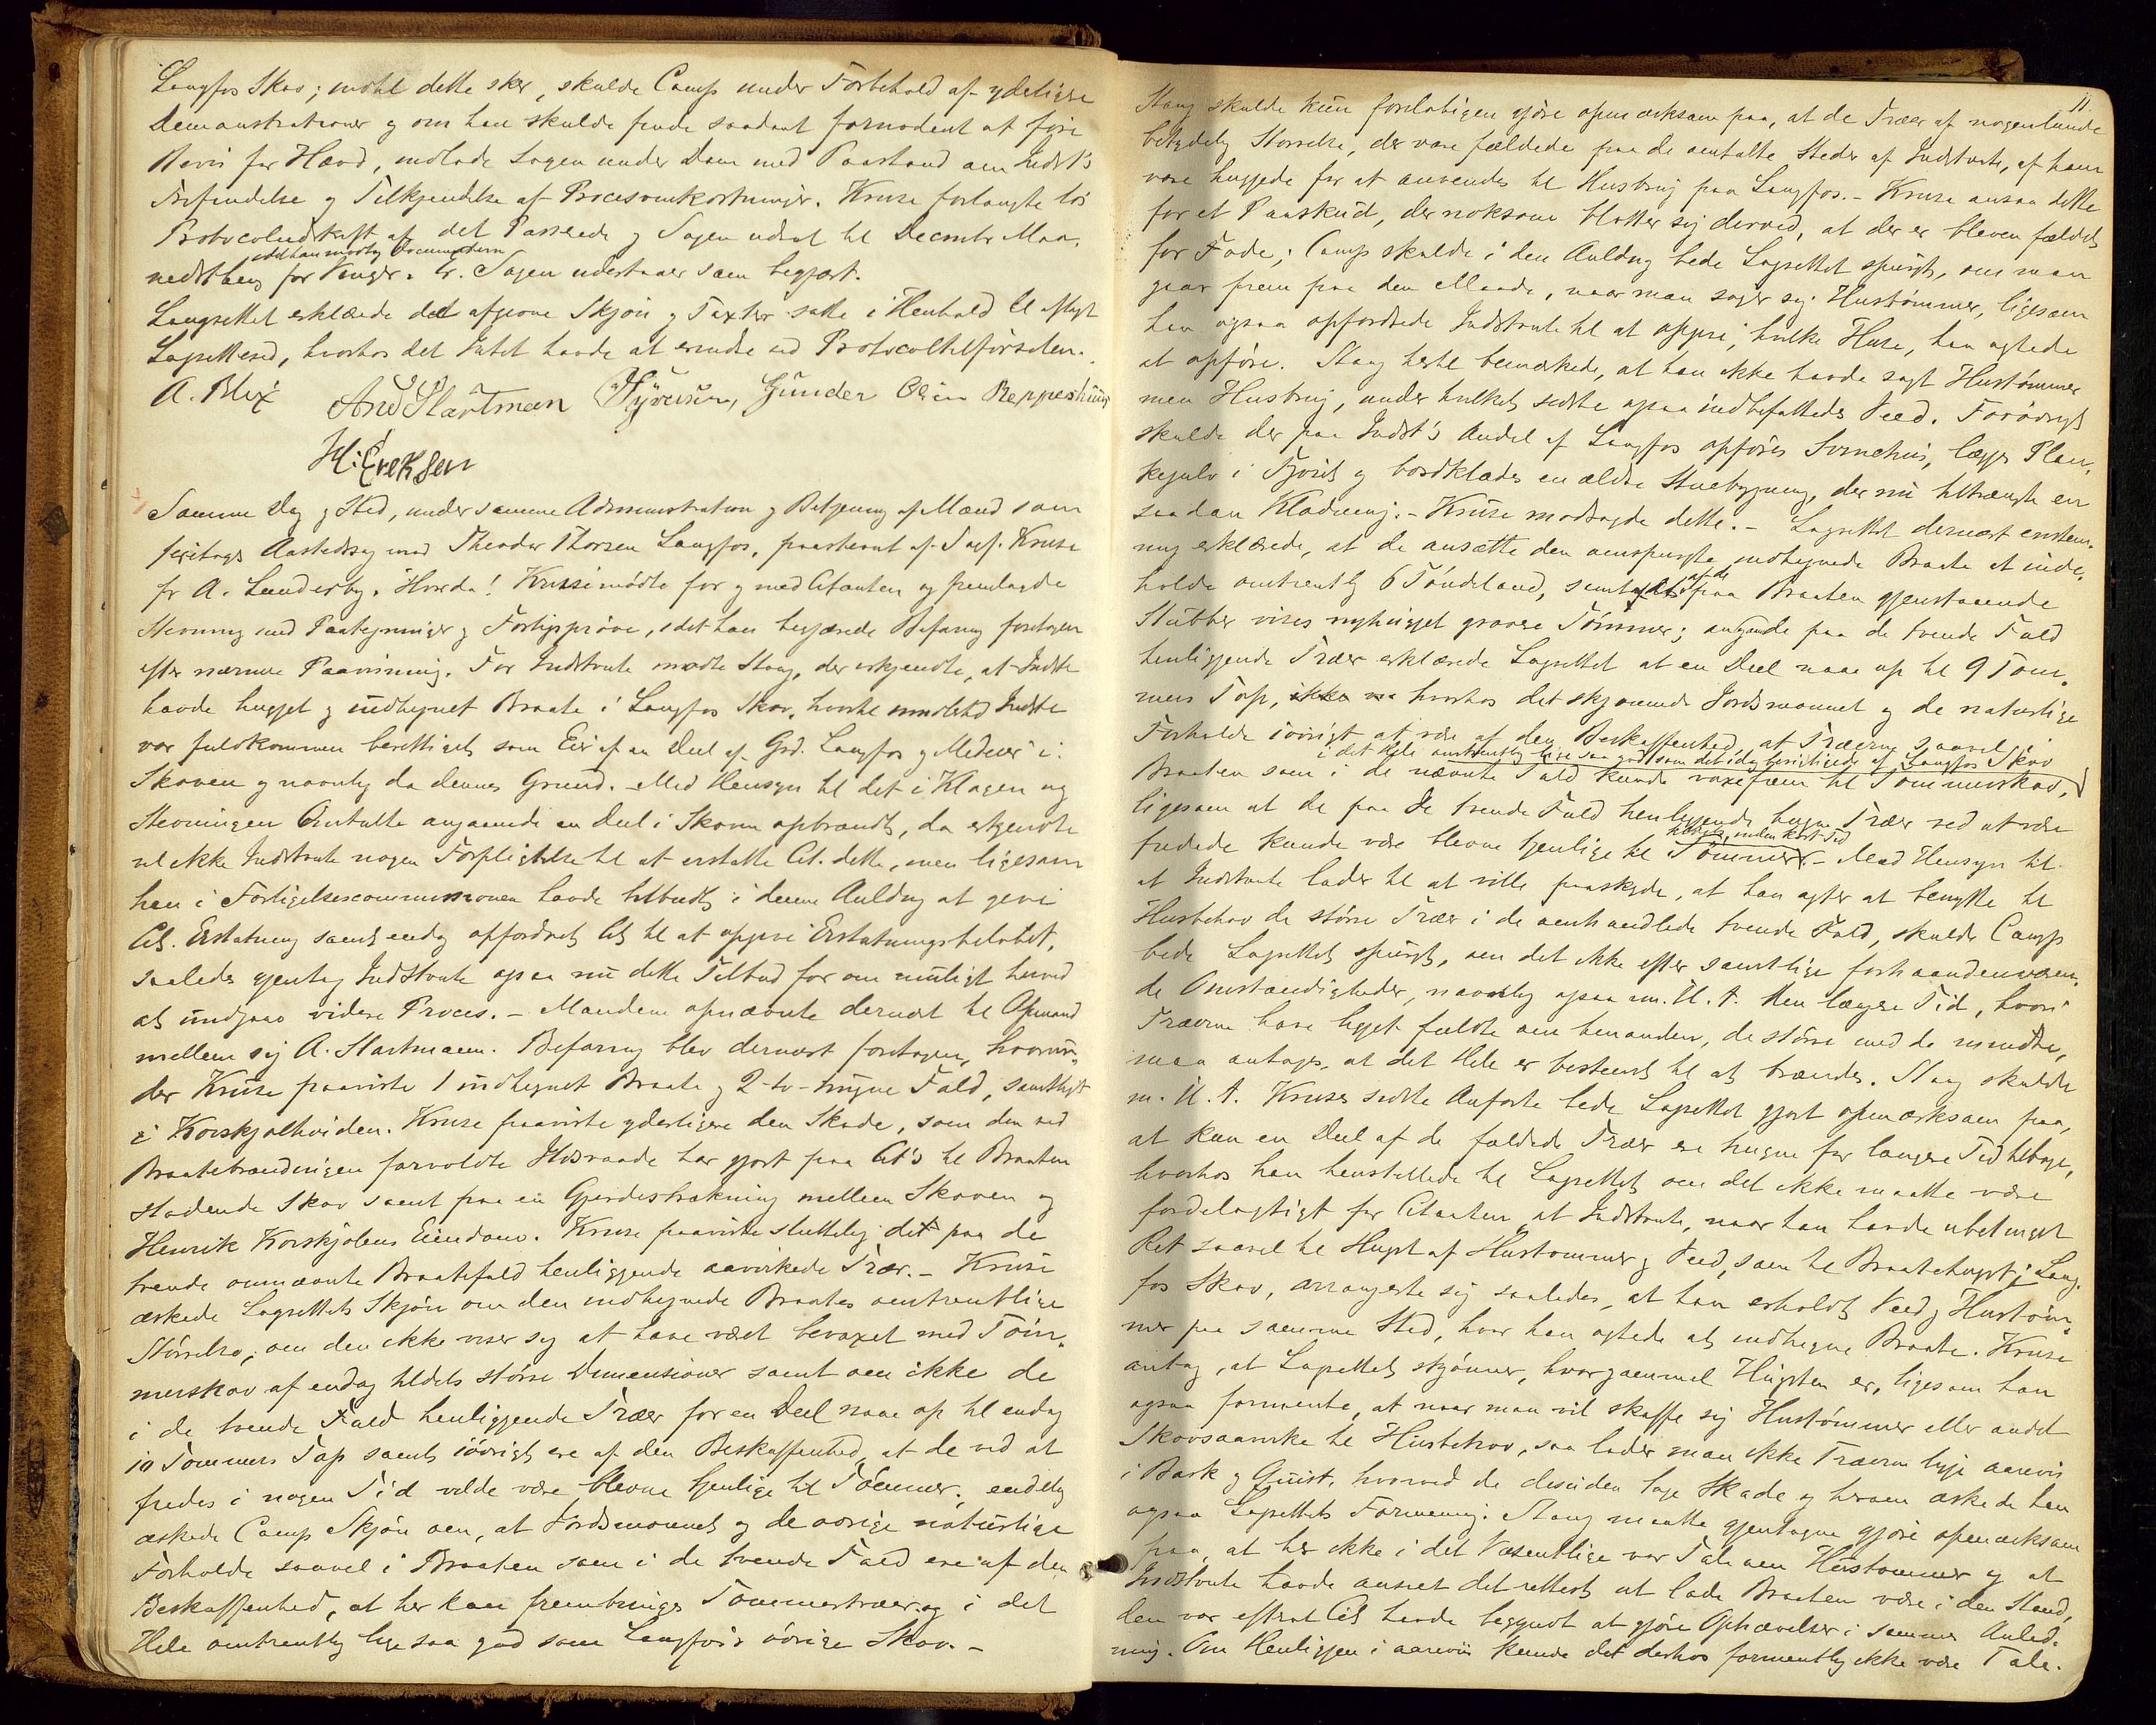 Langfos Skov; indtil dette sker, skulde Camp under Forbehold af yderligere
Demonstrationer og om han skulde finde saadant fornødent at føre
Bevis for Hævd, indlade Sagen under Dom med Paastand om Indst's
Frifindelse og Tilkjendelse af Procesomkostninger. Kruse forlangte
Protocoludskrift af det Passerede og Sagen udsat til Decmbr Maa-
nedsthing for Vinger. Er. Sagen udestaaer som begjært.
Laugrettet erklærede det afgivne Skjøn og Taxter satte i Henhold til aflagt
Lagrettesed, hvorhos det Intet havde at erindre ved Protocoltilførselen.
A. Blix And Startman Gunder Olsen Reppeshuus
H: Ereksen
Samme Dag og Sted, under samme Administration og Betjening af Mænd som
foretages Aastedssag mod Theodor Thorsen Langfos, paastevnt af Sagf. Kruse
for A. Sunderby. Hvorda! Kruse mødte for og med Citanten og fremlagde
Stevning med Paategninger og Forligsprøve, idet han begjærede Befaring foretagen
efter nærmere Paavisning. For Indstevnte mødte Stang, der erkjendte, at Indste
havde hugget og indhegnet Braate i Langfos Skov, hvortil imidlertid Indste
var fuldkommen berettiget som Eier af en Deel af Grd. Langfos og Medeier i
Skoven og navnlig da dennes Grund. - Med Hensyn til det i Klagen og
Stevningen Omtalte angaaende en Deel i Skoven opbrændt, da erkjendte
vel ikke Indstevnte nogen Forpligtelse til at erstatte Cit. dette, men ligesom
han i Forligelsescommissionen havde tilbudt i denne Anledng at give
Cit. Erstatning samt endog opfordret Cit til at opgive Erstatningsbeløbet,
saaledes gjentog Indstevnte ogsaa nu dette Tilbud for om muligt herved
at undgaae videre Proces. - Mændene opnævnte dernæst til Opmand
mellem sig A. Startmann. Befaring blev dernæst foretagen, hvorun-
der Kruse paaviste 1 indhegnet Braate og 2-to-hugne Fald, samtligt
i Korskjølhviden. Kruse paaviste yderligere den Skade, som den ved
Braatebrændingen forvoldte Ildsvaade har gjort paa Cit's til Braaten
stødende Skov samt paa en Gjerdestrækning mellem Skoven og
Henrik Korskjølens Eiendom. Kruse paaviste sluttelig det paa de
tvende omnævnte Braatefald henliggende aavirkede Trær. - Kruse
æskede Lagrettets Skjøn om den indhegnede Braates omtrentlige
Størrelse; om den ikke viser sig at have været bevoxet med Tøm-
merskov af endog tildels større Dimensioner samt om ikke de
i de tvende Fald henliggende Træer for en Deel naae op til endog
10 Tommers Top samt iøvrigt ere af den Beskaffenhed, at de ved at
fredes i nogen Tid vilde være blevne tjenlige til Tømmer; endelig
æskede Camp Skjøn om, at Jordsmonnet og de øvrige naturlige
Forholde saavel i Braaten som i de tvende Fald ere af den
Beskaffenhed, at her kan frembringes Tømmertrær og i det
Hele omtrentlig lige saa god som Langfos's øvrige Skov. -
11.
Stang skulde kun foreløbigen gjøre opmærksom paa, at de Træer af nogenlunde
betydelig Størrelse, der vare fældede paa de omtalte Steder af Indstevnte, af ham
vare huggede for at anvendes til Husbrug paa Langfos. - Kruse ansaa dette
for et Paaskud, der noksom blotter sig derved, at der er bleven fældet
for Fode; Camp skulde i den Anledng bede Lagrettet spurgt, om man
gaar frem paa den Maade, naar man søger sig Hustømmer, ligesom
han ogsaa opfordrede Indstevnte til at opgive, hvilke Huse, han agtede
at opføre. Stang hertil bemærkede, at han ikke havde sagt Hustømmer
men Husbrug, under hvilket sidste ogsaa indbefattedes Veed. Forøvrigt
skulde der paa Indst's Andel af Langfos opføres Svinehus, lægges Plan-
kegulv i Fjøset og bordklædes en ældre Stuebygning, der nu tiltrængte en
saadan Klædning. - Kruse modsagde dette. - Lagrettet dernæst enstem-
mig erklærede, at de ansætte den omspurgte indhegnede Braate at inde-
holde omtrentlig 6 Tøndeland, samt at af de paa Braaten gjenstaaende
Stubber vises nyhugget grovere Tømmer; angaaende paa de tvende Fald
henliggende Træer erklærede Lagrettet at en Deel naae op til 9 Tom-
mers Top, hvorhos det skjønnede Jordsmonnet og de naturlige
Forholde iøvrigt at være af den Beskaffenhed, at Træerne saavel i
i det Hele omtrentlig lige saa god som det i dag besigtigede af Langfos Skov
Braaten som i de nævnte Fald kunde voxe frem til Tømmerskov,
ligesom at de paa de tvende Fald henliggende hugne Træer ved at være
tildels inden kort Tid
fredede kunde være blevne tjenlige til Tømmer. - Med Hensyn til
at Indstevnte lader til at ville paaskyde, at han agter at benytte til
Husbehov de større Træer i de omhandlede tvende Fald, skulde Camp
bede Lagrettet spurgt, om det ikke efter samtlige forhaandenværen-
de Omstændigheder, navnlig ogsaa m. H. t. den længere Tid, hvori
Træerne have ligget fældte om hinanden, de større med de mindre,
maa antages, at det Hele er bestemt til at brændes. Stang skulde
m. H. t. Kruses sidste Anførte bede Lagrettet gjort opmærksom paa,
at kun en Deel af de fældede Træer ere hugne for længere Tid tilbage,
hvorhos han henstillede til Lagrettet om det ikke maatte være
fordelagtigt for Citanten at Indstevnte, naar han havde ubetinget
Ret saavel til Hugst af Hustømmer og Veed, som til Braatehugst i Lang-
fos Skov, arrangerte sig saaledes, at han erholdt Veed og Hustøm-
mer paa samme Sted, hvor han agtede at indhegne Braate. Kruse
antog, at Lagrettet skjønner, hvor gammel Hugsten er, ligesom han
ogsaa formente, at naar man vil skaffe sig Hustømmer eller andet
Skovsaavirke til Husbehov, saa lader man ikke Træerne ligge aarevis
i Bark og Quist, hvorved de desuden tage Skade og herom æskede han
ogsaa Lagrettets Formening. Stang maatte gjentagne gjøre opmærksom
paa, at her ikke i det Væsentlige var Tale om Hustømmer og at
Indstevnte havde anseet det rettest at lade Braaten være i den Stand,
den var efterat Cit havde begyndt at gjøre Ophævelser i samme Anled-
ning. Om Henliggen i aarevis kunde det derhos formentlig ikke være Tale.